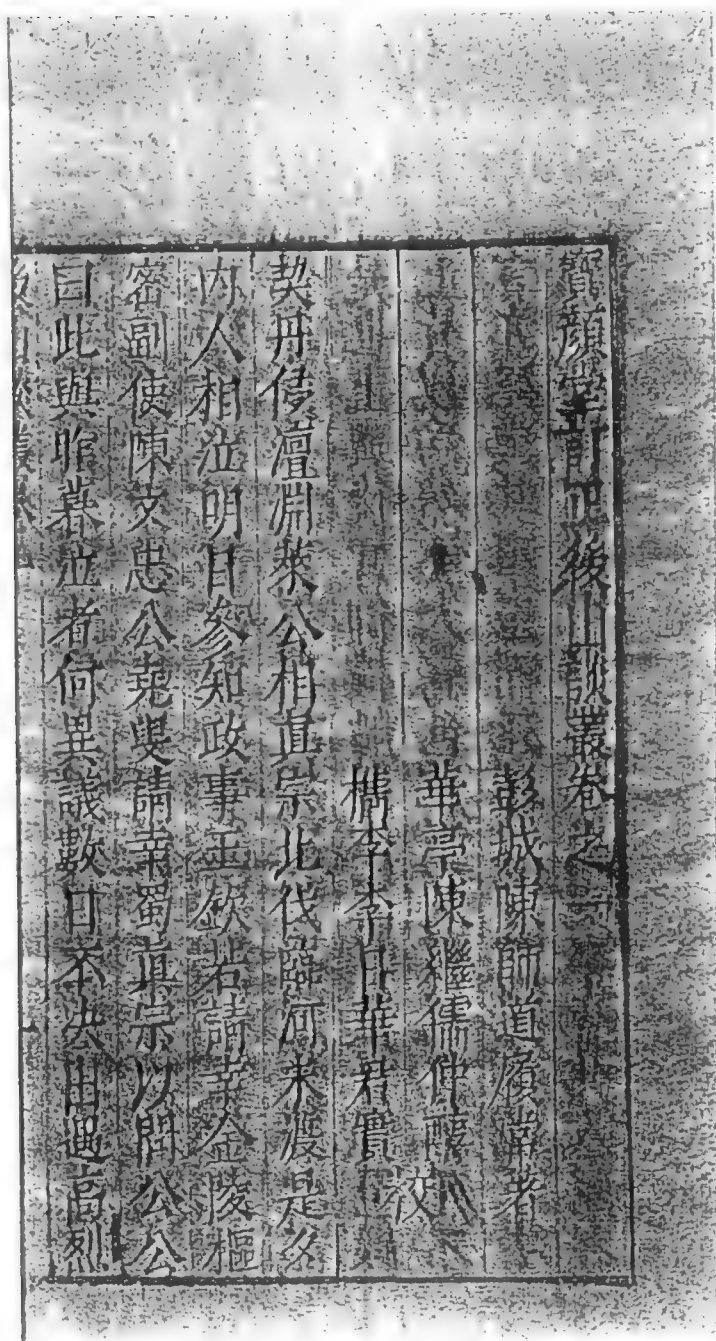 寶顏堂訂正後山談叢卷之一
彭城陳師道履常著
華亭陳繼儒仲醇
檇李李日華君實
校
契丹侵澶淵萊公相真宗北伐臨河未渡是夕
內人相泣明日參知政事王欽若請幸金陵樞
密副使陳文忠公堯叟請幸蜀真宗以問公公
曰此與昨暮泣者何異議數日不決出遇高烈